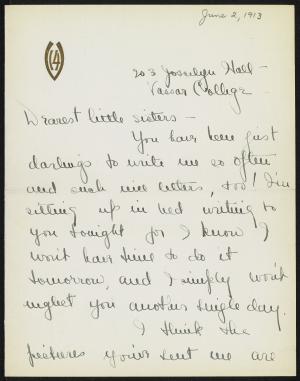 June 2, 1913
14
203 Josselyn Hall -
Vassar College
Dearest little sisters -
You have been just
darlings to write me so often
and such nice letters, too! I'm
sitting up in bed writing to
you tonight for I know I
won't have time to do it
tomorrow, and I simply won't
neglect you another single day.
I think the
pictures you've sent me are